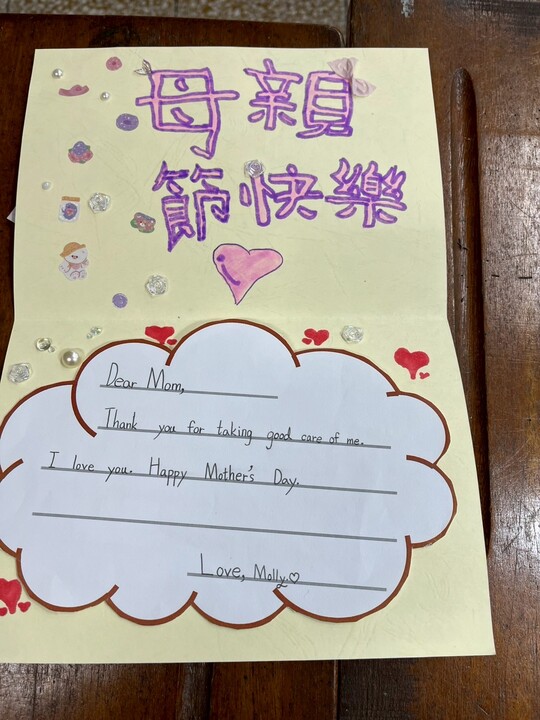 母親
節快樂
Dear Mom,
Thank you for taking good care of me.
I love you. Happy Mother's Day.
Love, Molly♡